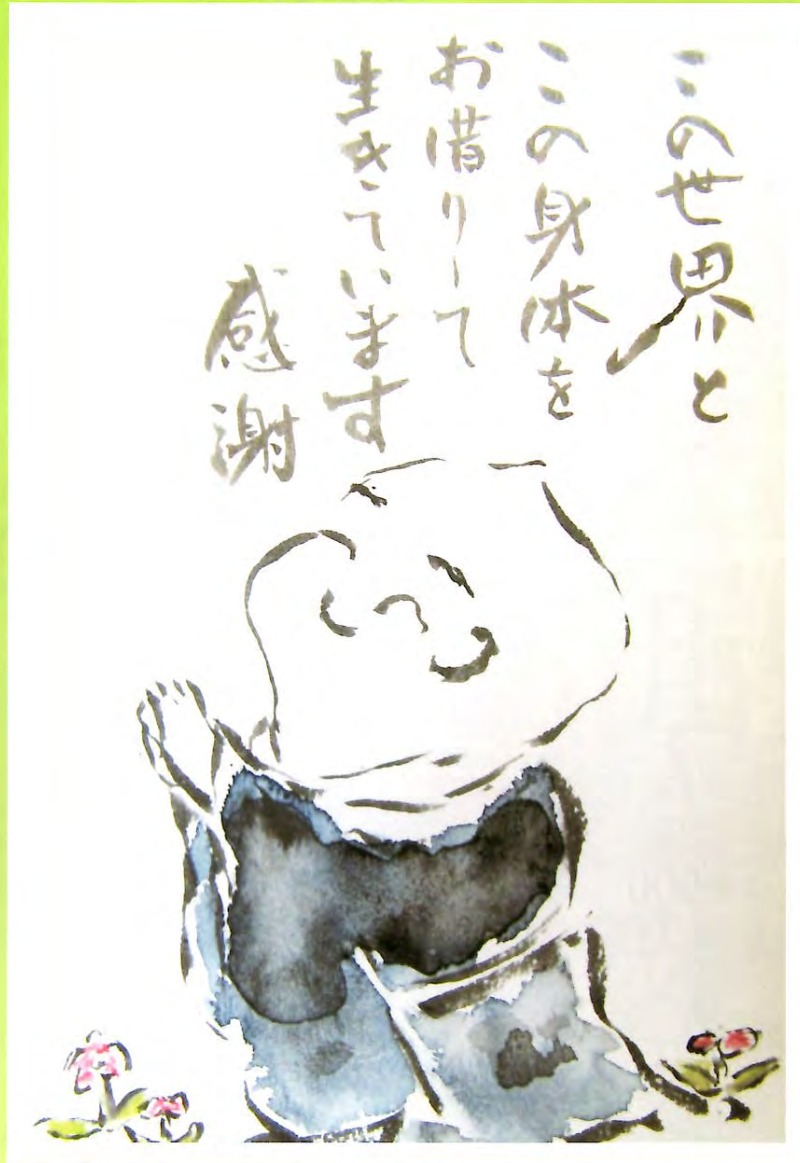 この世界と
この身体を
お借りして
生きています
感謝